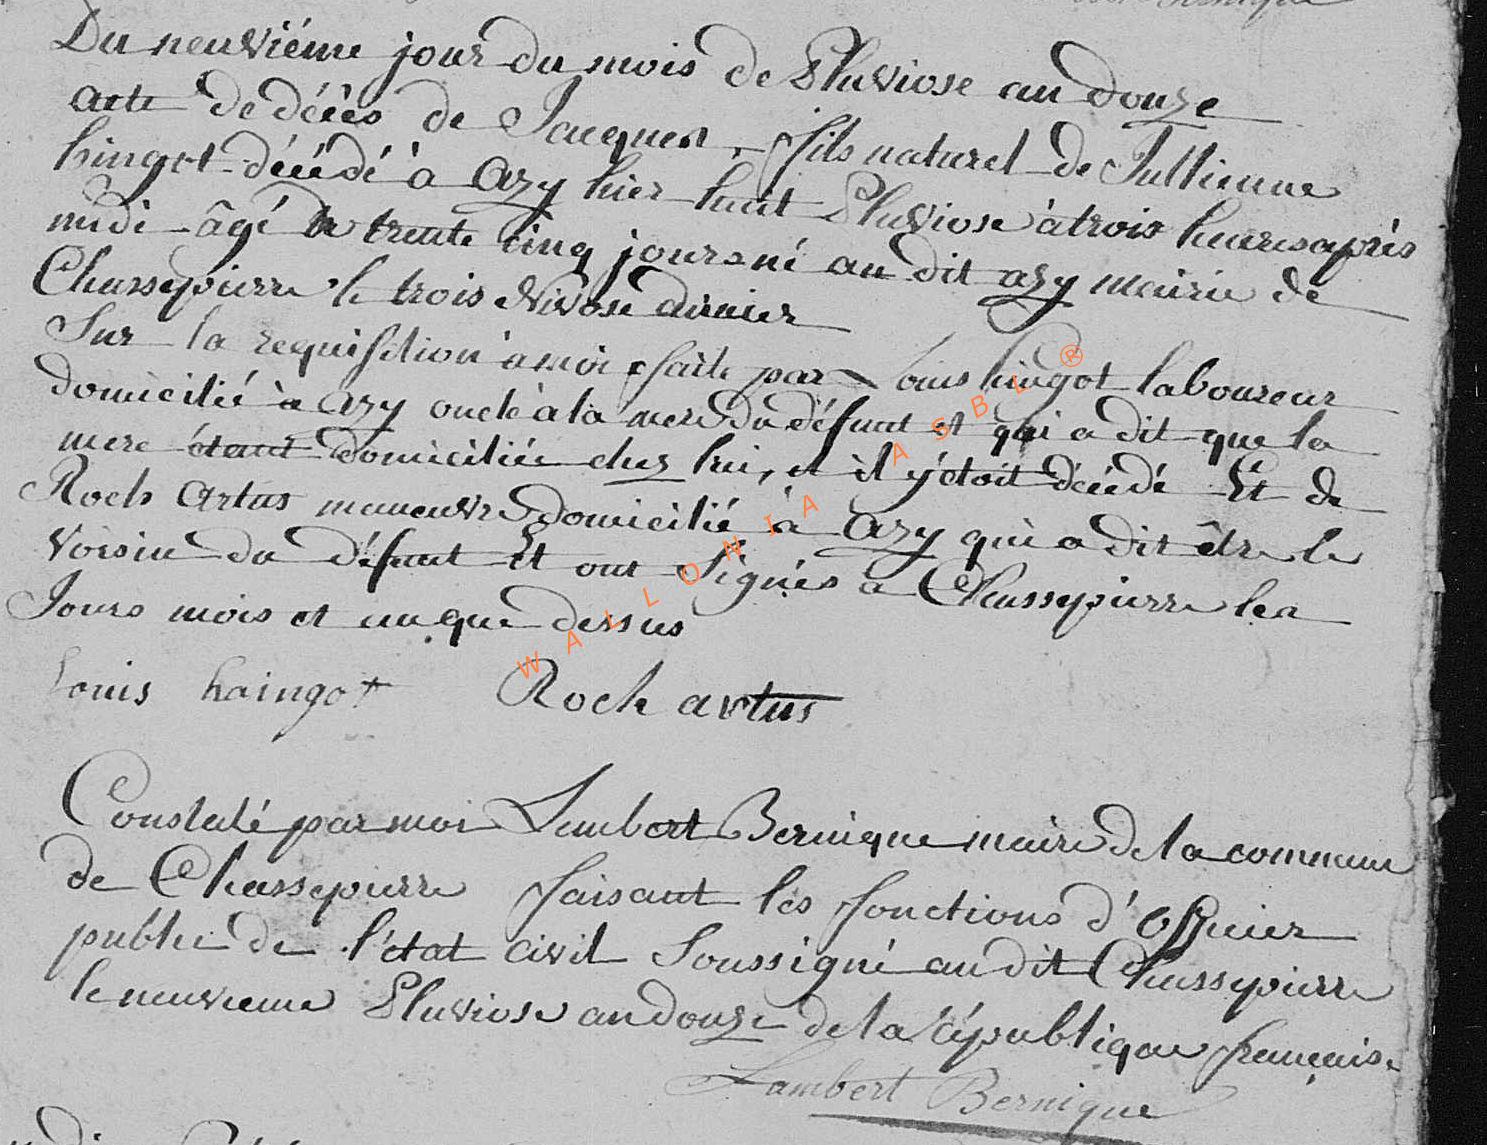 Du neuviéme jour du mois de Pluviose an douze
acte de décès de Jacques, fils naturel de Jullienne
hingot décédé à azy hier huit Pluviose à trois heures après
midi âgé de trente cinq jours né au dit azy mairie de
Chassepierre le trois Nivose dernier
Sur la requisition à moi faite par Louis hingot laboureur
domicilié à azy oncle à la mere du défunt et qui a dit que la
mere étant domiciliée chez lui, et il y étoit décédé Et de
Roch Artus maneuvre domicilié à azy qui a dit être le
voisin du défunt Et ont Signés a Chassepierre les
Jours mois et an que dessus
Louis haingot Roch artus
Constaté par moi Lambert Bernique maire de la commune
de Chassepierre faisant les fonctions d'Officier
public de l'état civil Soussigné au dit Chassepierre
le neuvieme Pluviose an douze de la république française
Lambert Bernique
WALLONIA ASBL ®